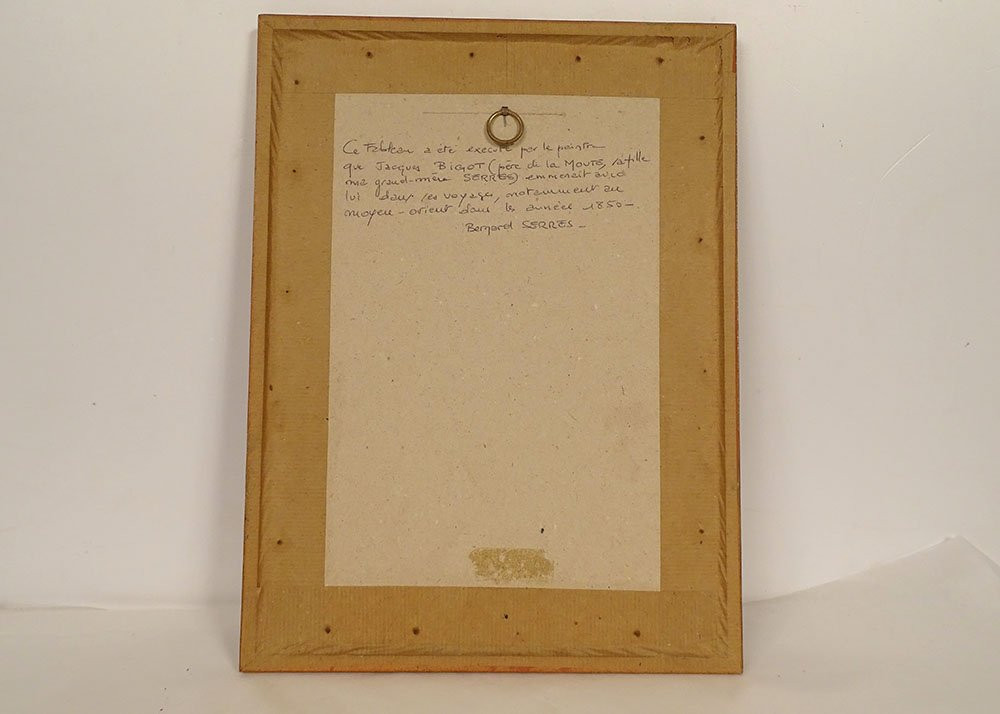 Ce Tableau a été exécuté par le peintre
que Jacques BIGOT (père de la MOUTE, sa fille
ma grand-mère SERRES) emmenait avec
lui dans ses voyages, notamment au
moyen-orient dans les années 1850-.
Bernard SERRES-